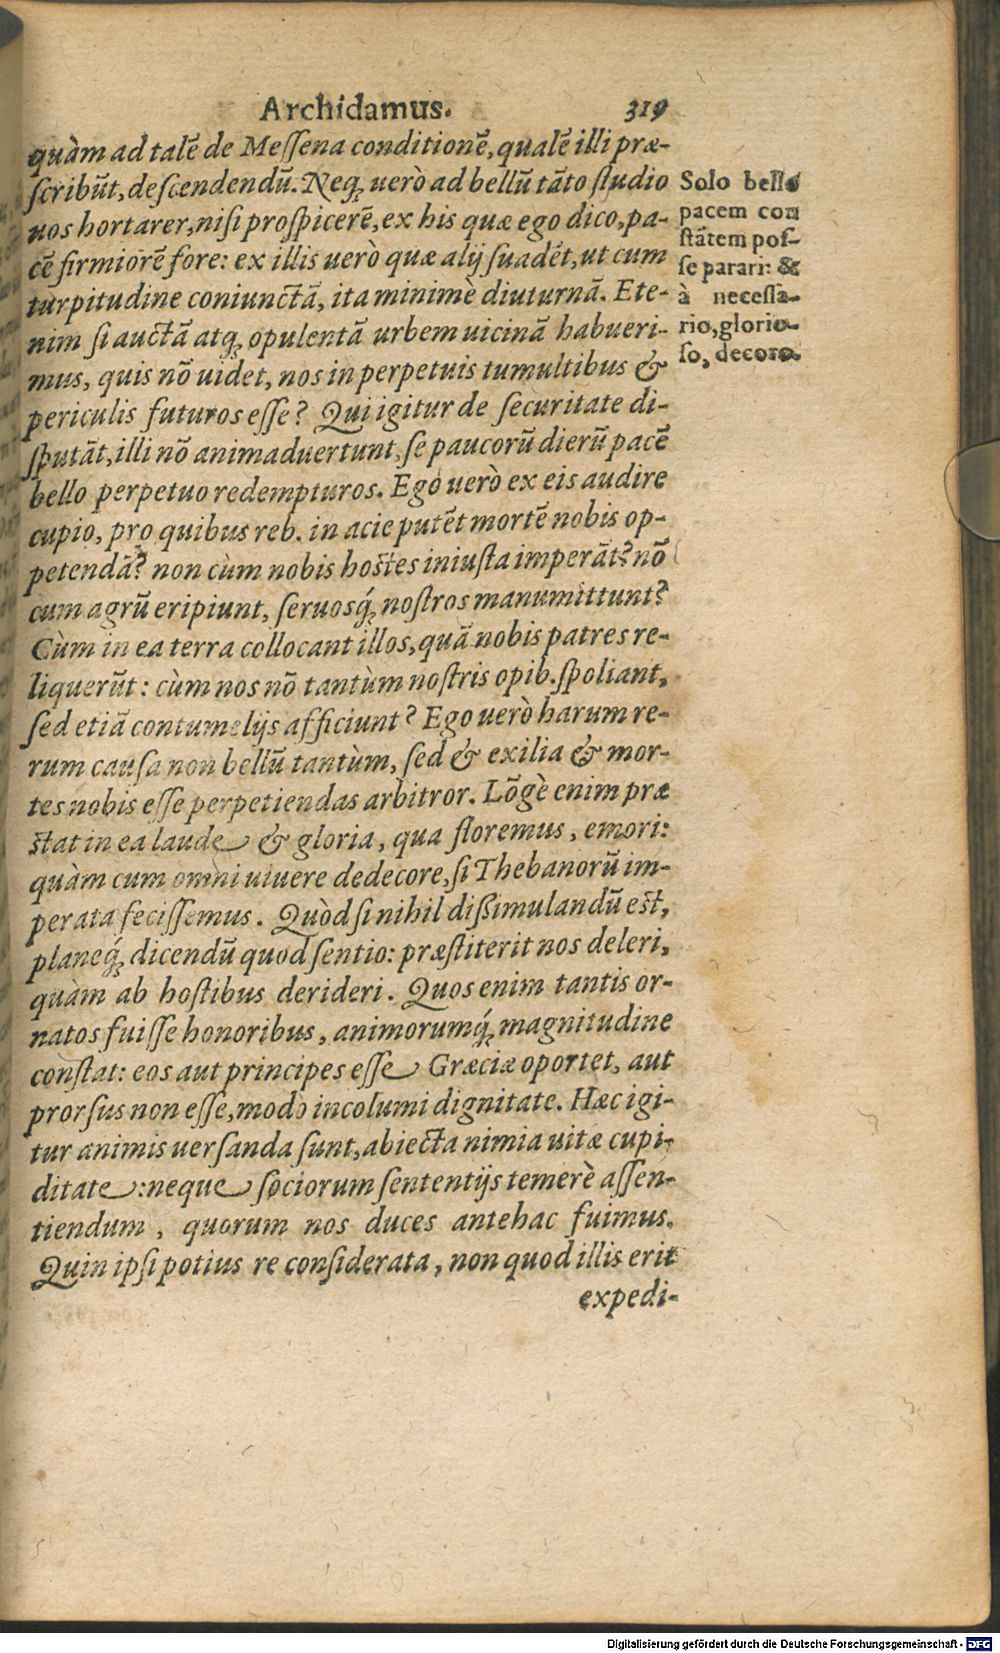 Archidamus. 319
quàm ad talē de Meſſena conditionē, qualē illi præ-
ſcribūt, deſcendendū. Neq; uerò ad bellū tāto ſtudio
uos hortarer, niſi proſpicerē, ex his quæ ego dico, pa-
cē firmiorē fore: ex illis uerò quæ alij ſuadēt, ut cum
turpitudine coniunctā, ita minimè diuturnā. Ete-
nim ſi auctā atq; opulentā urbem uicinā habueri-
mus, quis nō uidet, nos in perpetuis tumultibus &
periculis futuros eſſe? Qui igitur de ſecuritate di-
ſputāt, illi nō animaduertunt, ſe paucorū dierū pacē
bello perpetuo redempturos. Ego uerò ex eis audire
cupio, pro quibus reb. in acie putēt mortē nobis op-
petendā? non cùm nobis hoſtes iniuſta imperāt? nō
cum agrū eripiunt, ſeruosq́; noſtros manumittunt?
Cùm in ea terra collocant illos, quā nobis patres re-
liquerūt: cùm nos nō tantùm noſtris opib. ſpoliant,
ſed etiā contumelijs afficiunt? Ego uerò harum re-
rum cauſa non bellū tantùm, ſed & exilia & mor-
tes nobis eſſe perpetiendas arbitror. Lōgè enim præ
ſtat in ea laude & gloria, qua floremus, emori:
quàm cum omni uiuere dedecore, ſi Thebanorū im-
perata feciſſemus. Quòd ſi nihil dißimulandū eſt,
planeq́; dicendū quod ſentio: præſtiterit nos deleri,
quàm ab hoſtibus derideri. Quos enim tantis or-
natos fuiſſe honoribus, animorumq́; magnitudine
conſtat: eos aut principes eſſe Græciæ oportet, aut
prorſus non eſſe, modò incolumi dignitate. Hæc igi-
tur animis uerſanda ſunt, abiecta nimia uitæ cupi-
ditate: neque ſociorum ſententijs temerè aſſen-
tiendum, quorum nos duces antehac fuimus.
Quin ipſi potius re conſiderata, non quod illis erit
expedi-
Solo bello
pacem con
ſtātem poſ-
ſe parari: &
à neceſſa-
rio, glorio-
ſo, decoro.
Digitalisierung gefördert durch die Deutsche Forschungsgemeinschaft - DFG